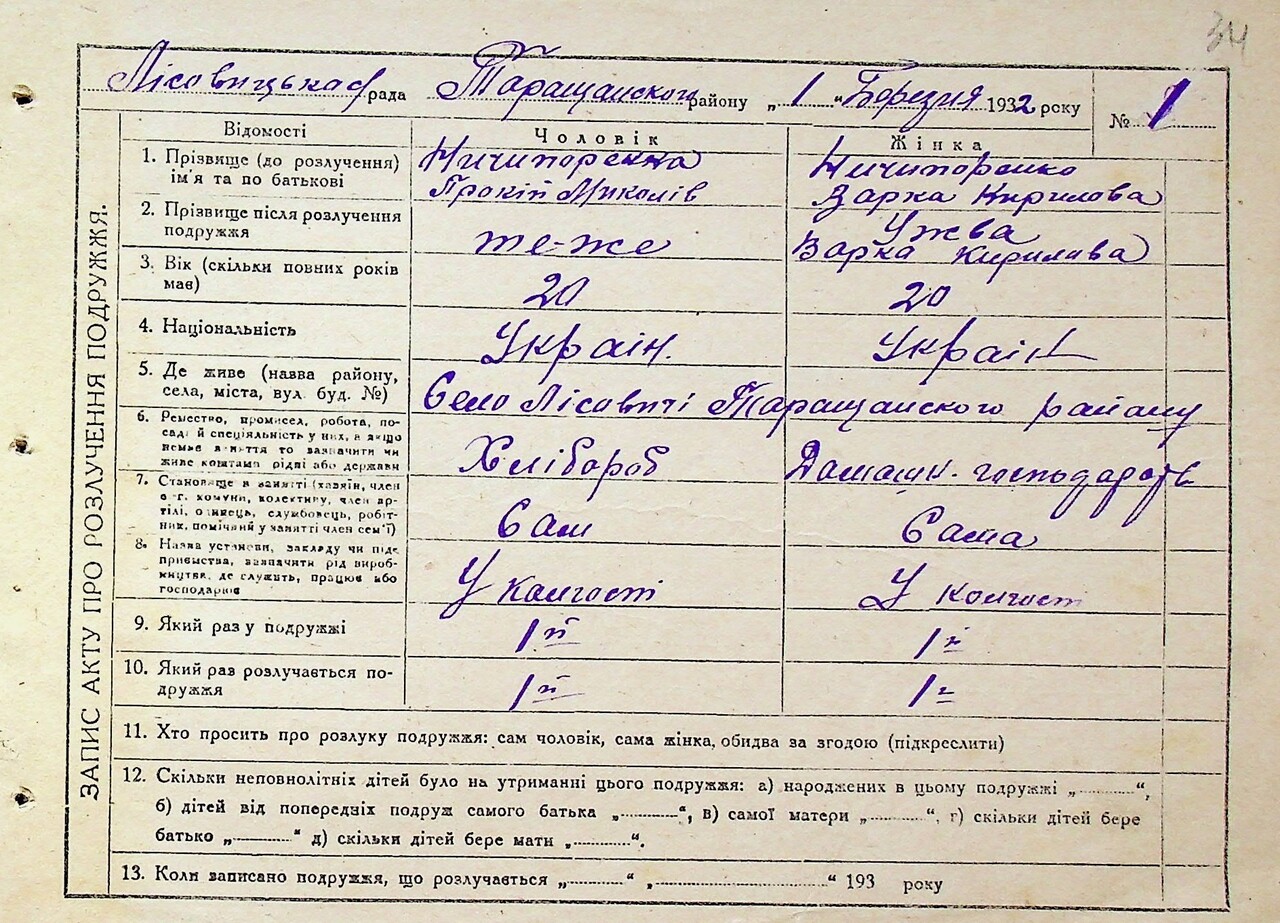 34
Лісовицька рада Таращанского району „1“ Березня 1932 року № 1
ЗАПИС АКТУ ПРО РОЗЛУЧЕННЯ ПОДРУЖЖЯ.
Відомості Чоловік Жінка
1. Прізвище (до розлучення) Ничипоренко Ничипоренко
ім'я та по батькові Прокіп Миколів Варка Кирилова
2. Прізвище після розлучення Ужва
подружжя те-же Варка Кирилава
3. Вік (скільки повних років
має) 20 20
4. Національність Україн. Україн
5. Де живе (назва району,
села, міста, вул. буд. №) Село Лісовичі Таращанского району
6. Ремество, промисел, робота, по-
саді й спеціяльність у них, а якщо
немає заняття то зазначити чи
живе коштами рідні або держави Хлібороб Домашн. господарств
7. Становище в занятті (хазяїн, член
с.-г. комуни, колективу, член ар-
тілі, одинець, службовець, робіт-
ник, помічний у занятті член сем'ї) Сам Сама
8. Назва установи, закладу чи під-
приємства, зазначити рід вироб-
ництва, де служить, працює або
господарює У колгості У колгост
9. Який раз у подружжі 1й 1й
10. Який раз розлучається по-
дружжя 1й 1й
11. Хто просить про розлуку подружжя: сам чоловік, сама жінка, обидва за згодою (підкреслити)
12. Скільки неповнолітніх дітей було на утриманні цього подружжя: а) народжених в цьому подружжі „..........“,
б) дітей від попередніх подруж самого батька „..........“, в) самої матери „..........“, г) скільки дітей бере
батько „..........“ д) скільки дітей бере мати „..........“.
13. Коли записано подружжя, що розлучається „..........“ „....................“ 193 року